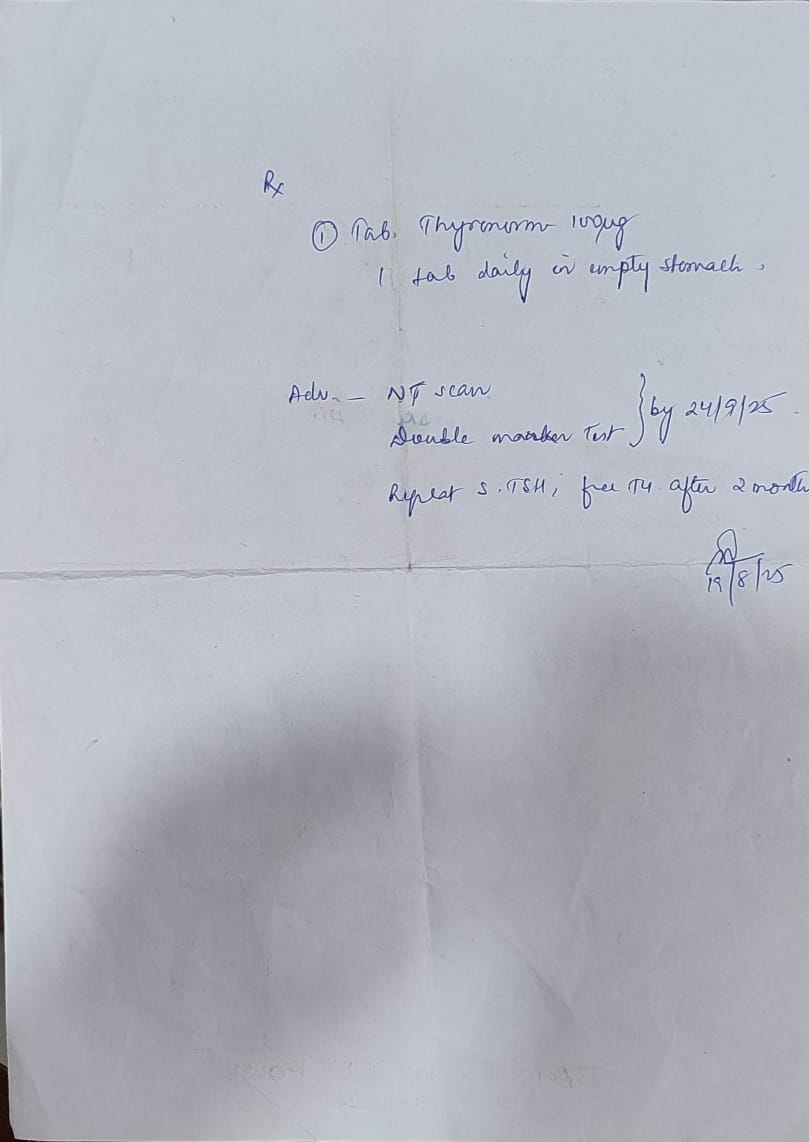 Rx
① Tab. Thyronorm 100µg
1 tab daily in empty stomach.
Adv. – NT scan
Double marker Test } by 24/9/25.
Repeat S. TSH, free T4. after 2 month
19/8/25